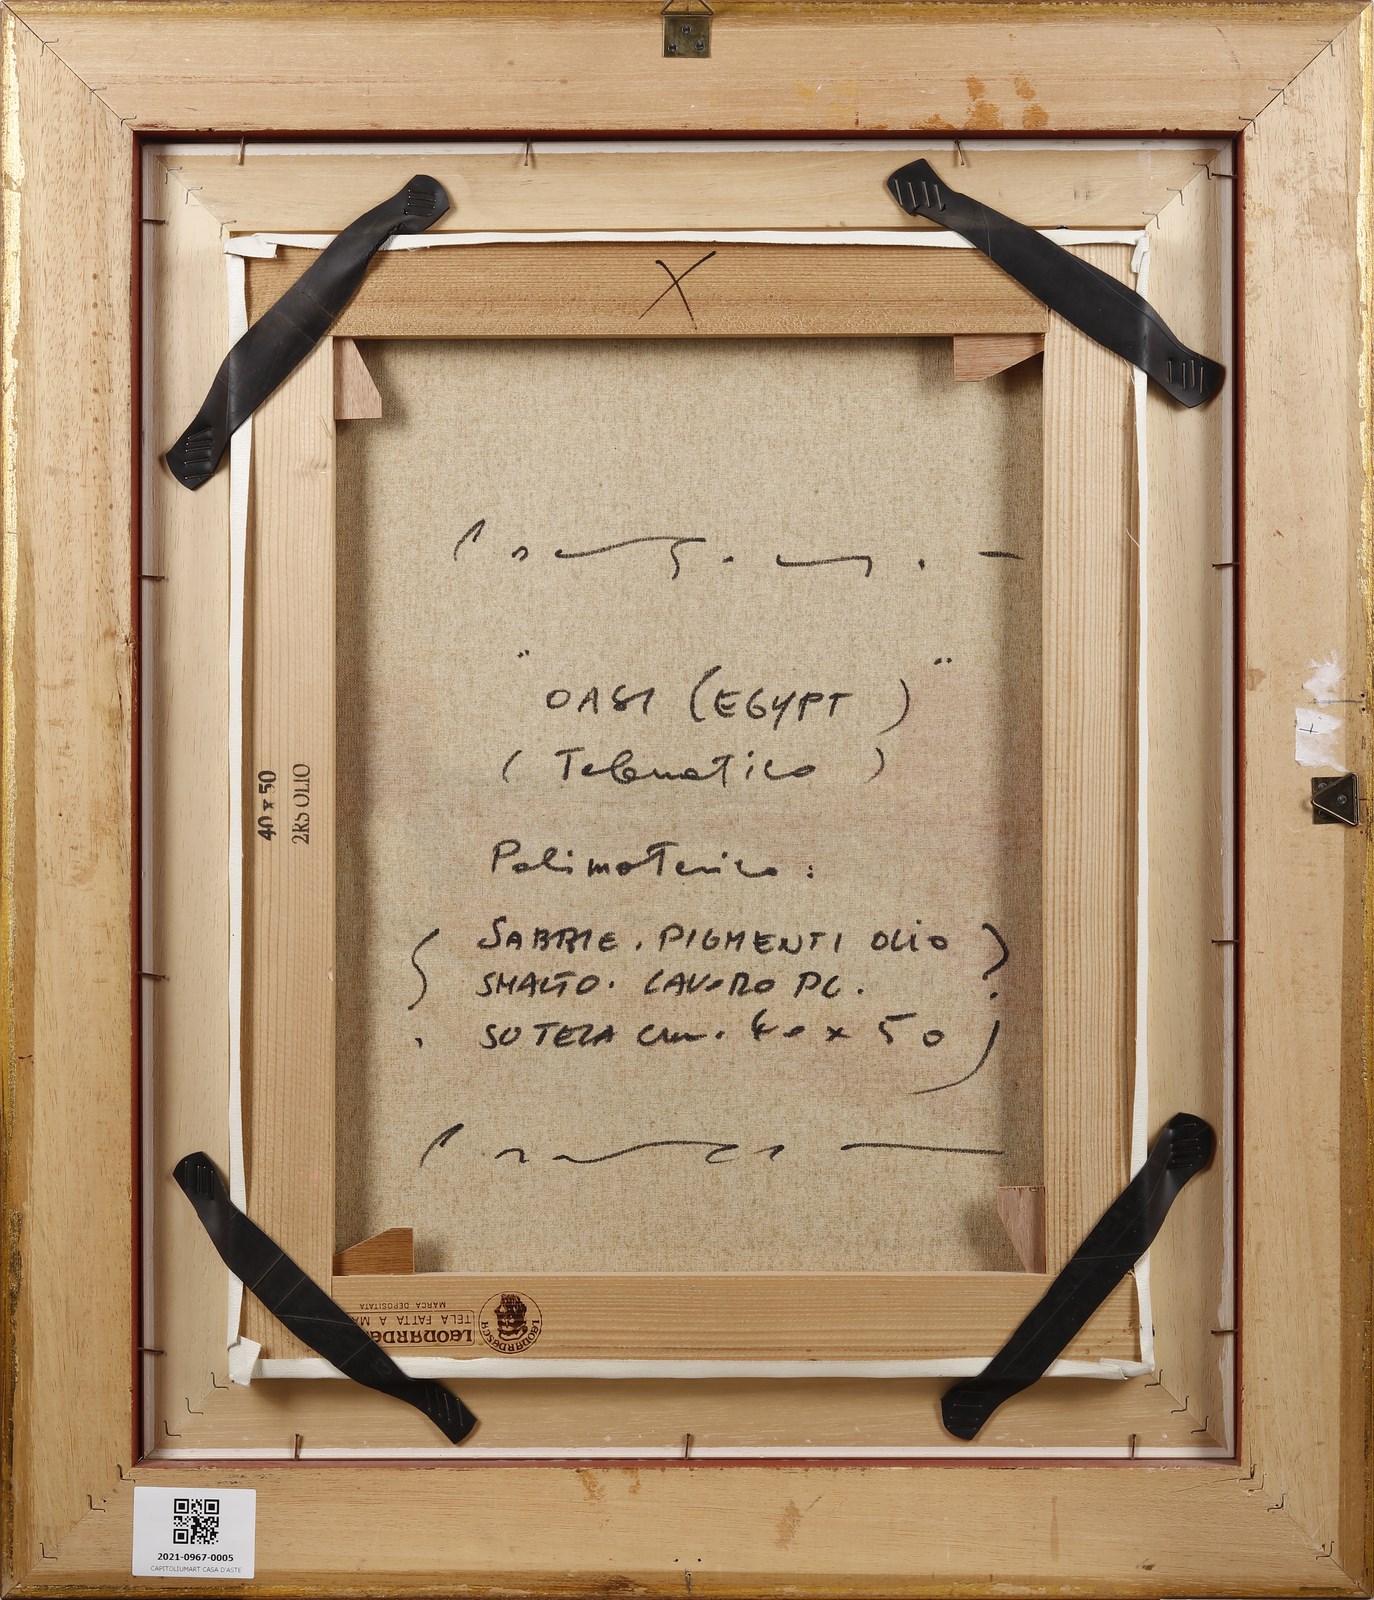 X
" OASI (EGYPT) "
( Telematico )
Polimaterico :
SABBIE. PIGMENTI OLIO
SMALTO. LAVORO PC.
SU TELA cm. 40 x 50
40 x 50
2RS OLIO
LEONARDESCA
LEONARDE
TELA FATTA A MA
MARCA DEPOSITATA
2021-0967-0005
CAPITOLIUMART CASA D'ASTE